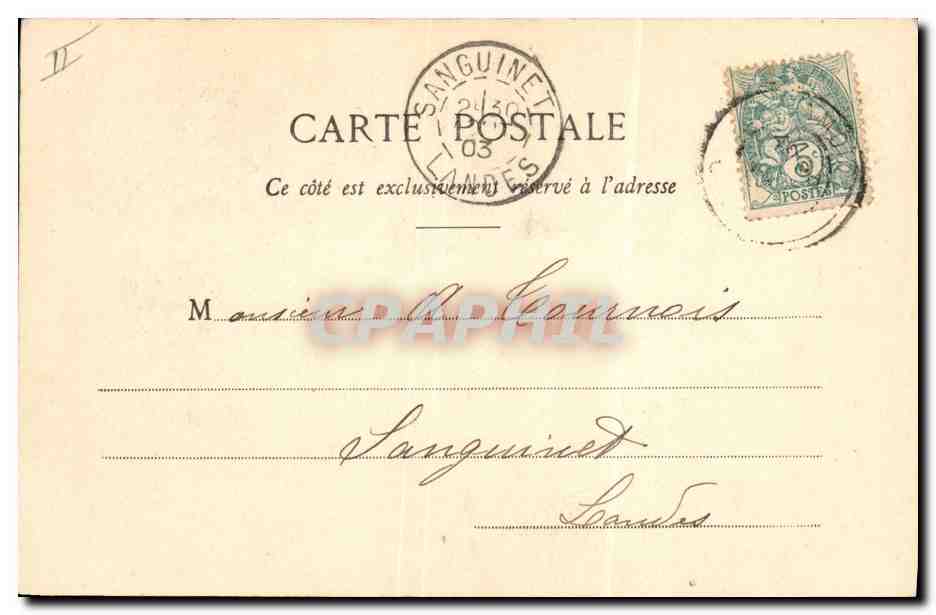 SANGUINET
03
LANDES
CARTE POSTALE
Ce côté est exclusivement réservé à l'adresse
POSTES
Monsieur A Tournois
CPAPHIL
Sanguinet
Landes